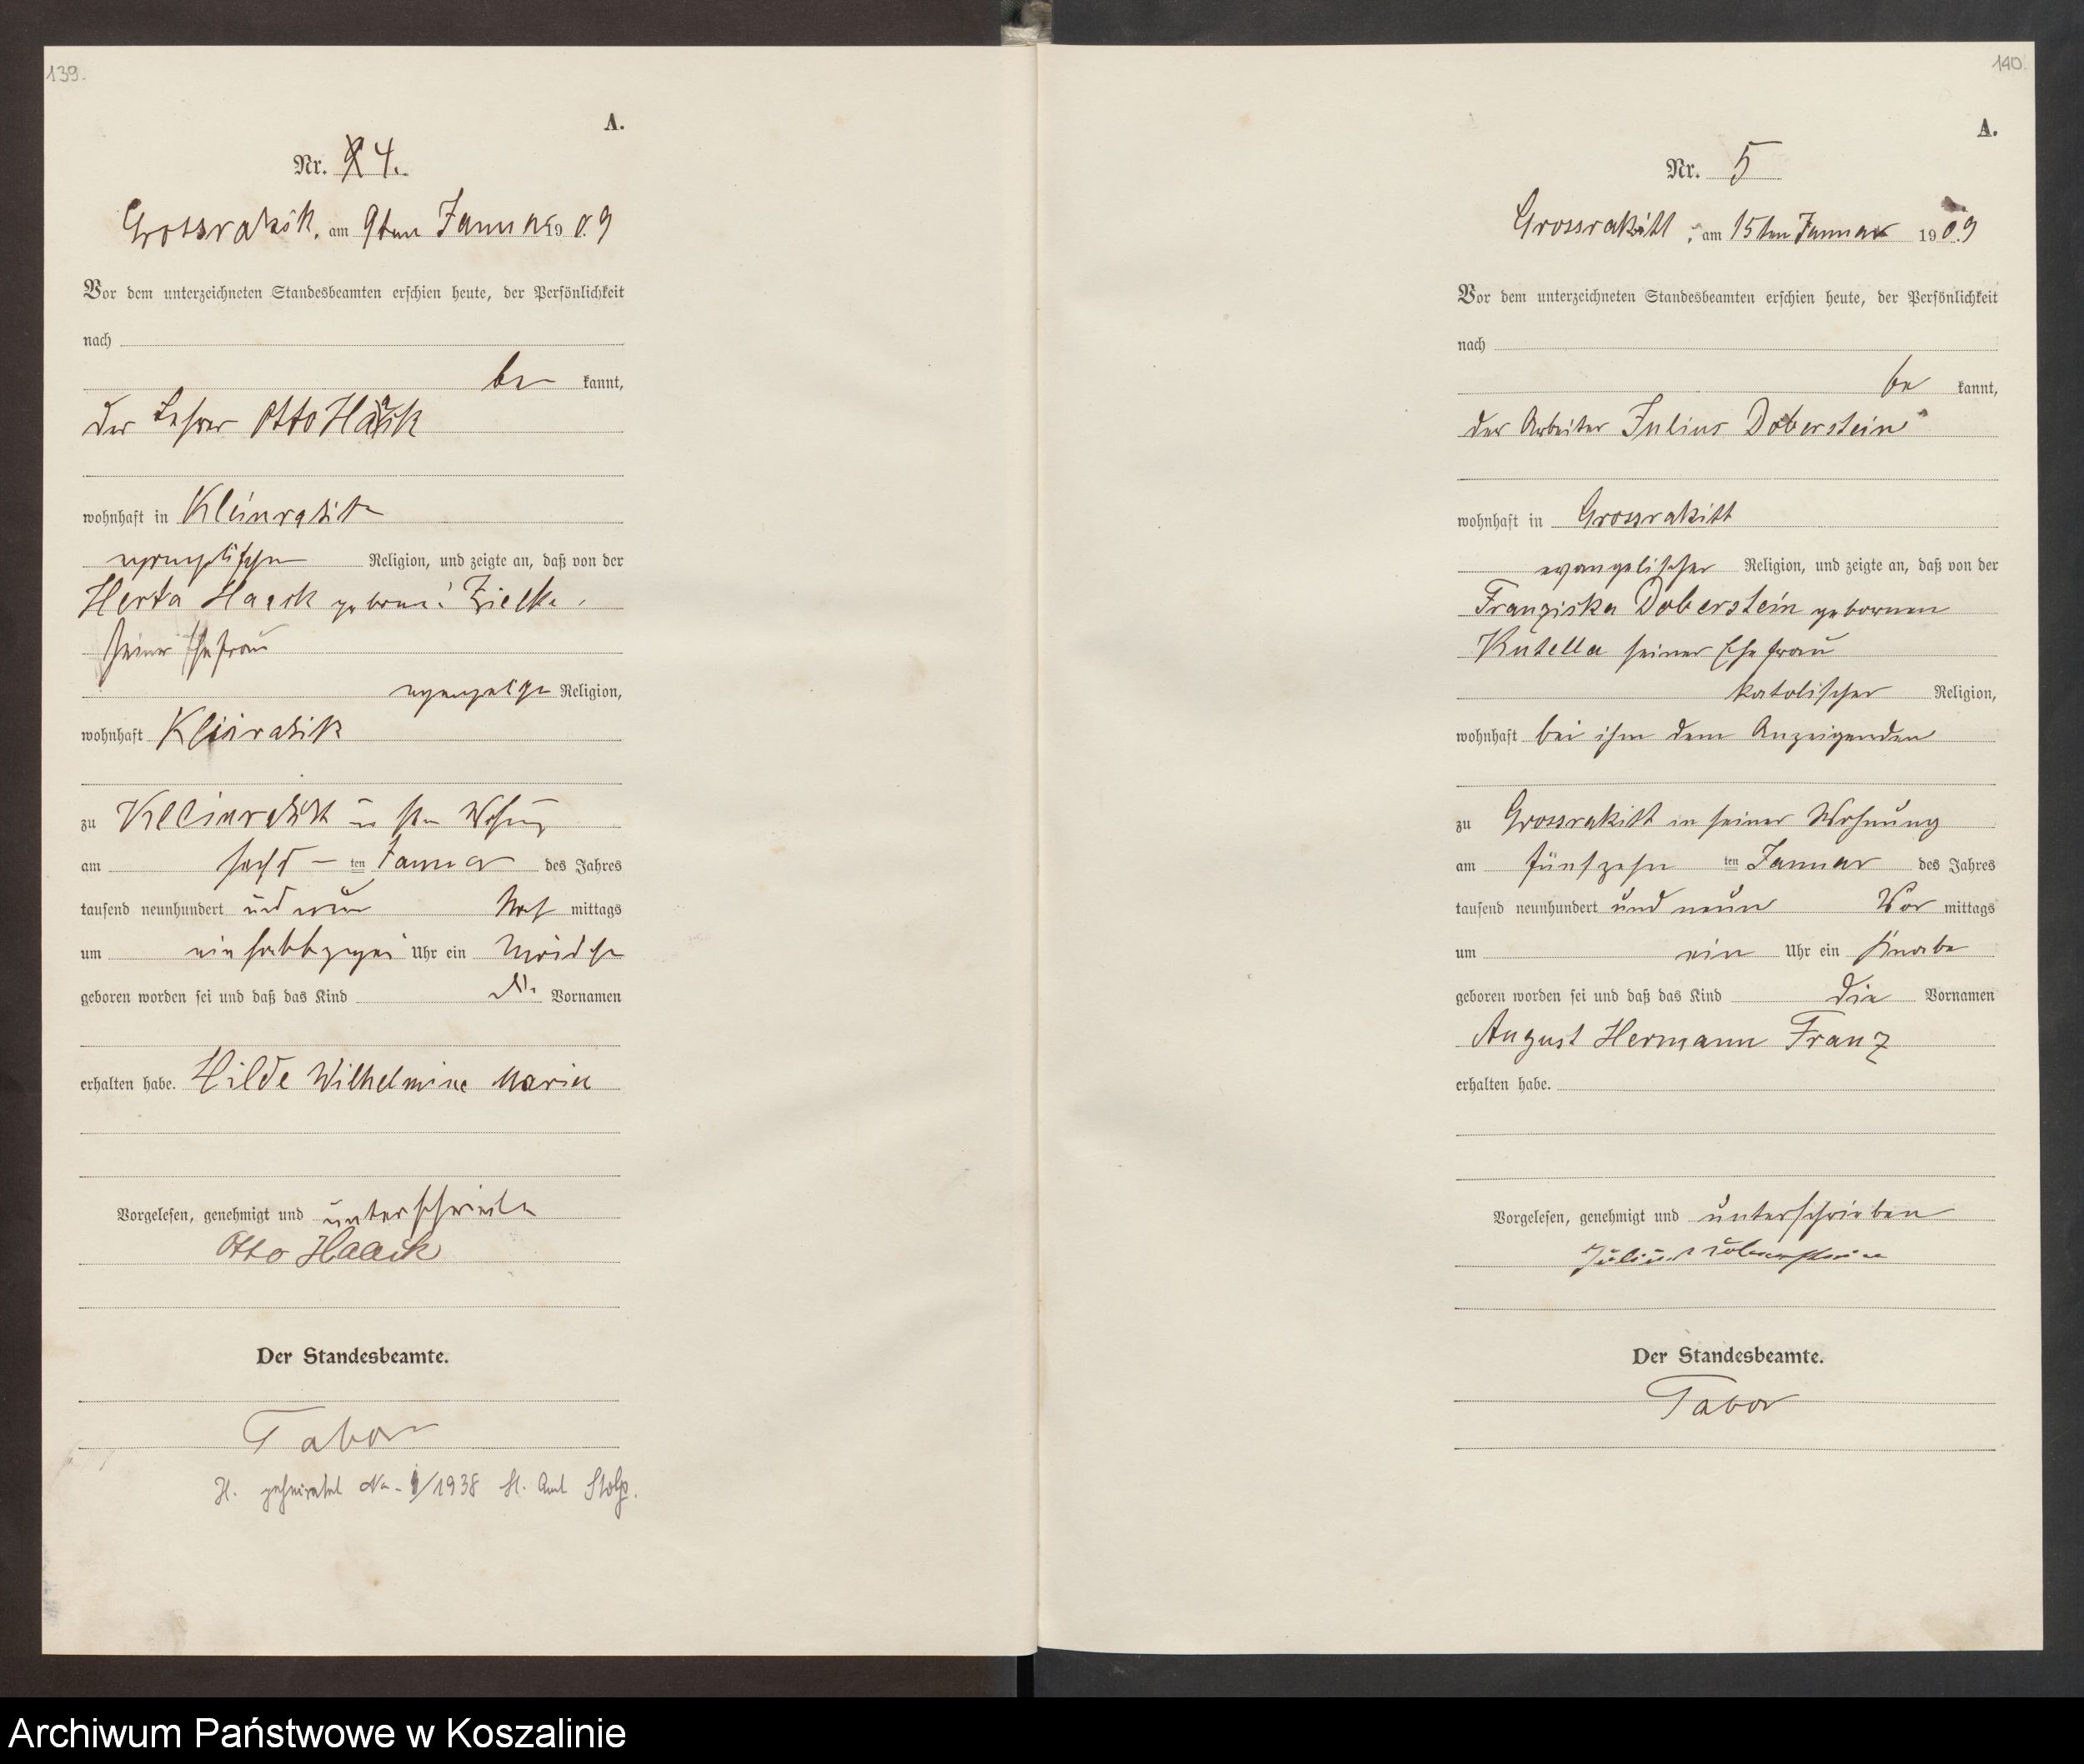 139.
A.
Nr. 4.
Grossrakitt, am 9ten Januar 1909
Vor dem unterzeichneten Standesbeamten erschien heute, der Persönlichkeit
nach
be kannt,
der Lehrer Otto Haack
wohnhaft in Kleinrakitt
evangelischer Religion, und zeigte an, daß von der
Herta Haack geborne Zielke,
seiner Ehefrau
Religion,
wohnhaft Kleinrakitt
zu Kleinrakitt in Wohnung
am sechs ten Januar des Jahres
tausend neunhundert und neun Nach mittags
um ein halb zwei Uhr ein Mädchen
geboren worden sei und daß das Kind die Vornamen
erhalten habe. Hilde Wilhelmine Marie
Vorgelesen, genehmigt und unterschrieben
Otto Haack
Der Standesbeamte.
Tabor
H. geheiratet 1938 St. Amt Stolp.
140.
A.
Nr. 5
Grossrakitt, am 15ten Januar 1909
Vor dem unterzeichneten Standesbeamten erschien heute, der Persönlichkeit
nach
be kannt,
der Arbeiter Julius Doberstein
wohnhaft in Grossrakitt
evangelischer Religion, und zeigte an, daß von der
Franziska Doberstein gebornen
Kutella seiner Ehefrau
katolischer Religion,
wohnhaft bei ihm dem Anzeigenden
zu Grossrakitt in seiner Wohnung
am fünfzehn ten Januar des Jahres
tausend neunhundert und neun Vor mittags
um ein Uhr ein Knabe
geboren worden sei und daß das Kind die Vornamen
August Hermann Franz
erhalten habe.
Vorgelesen, genehmigt und unterschrieben
Julius Doberstein
Der Standesbeamte.
Tabor
Archiwum Państwowe w Koszalinie